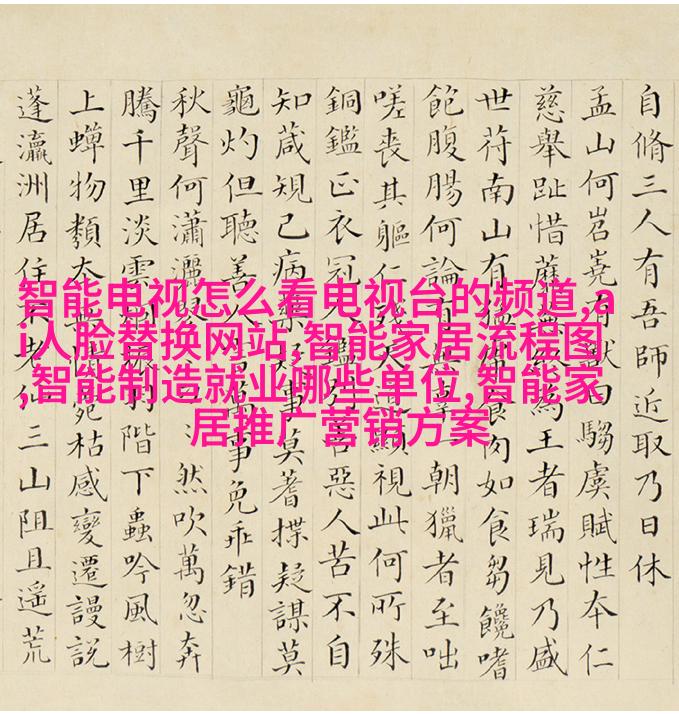 自脩三人有吾師近取乃日休
孟山何岧嶤有獸曰騶虞賦性本仁
慈舉趾惜為王者瑞見乃盛
世荷南山有猛食肉如食芻饞嗜
飽腹腸何論有一朝獵者至咄
嗟喪其軀仁顯視此何所殊
銅鑑正衣冠人鑑別善惡人苦不自
知葴規己病藥莫蓍揲疑謀莫
龜灼但聽善人言萬事免乖錯
秋聲何瀟灑然吹萬忽奔
騰千里淡雲階下蟲吟風樹
上蟬物類本無菀枯感變遷謾説
蓬瀛洲居住老仙三山阻且遙荒
智能电视怎么看电视台的频道,a
i人脸替换网站,智能家居流程图
,智能制造就业哪些单位,智能家
居推广营销方案